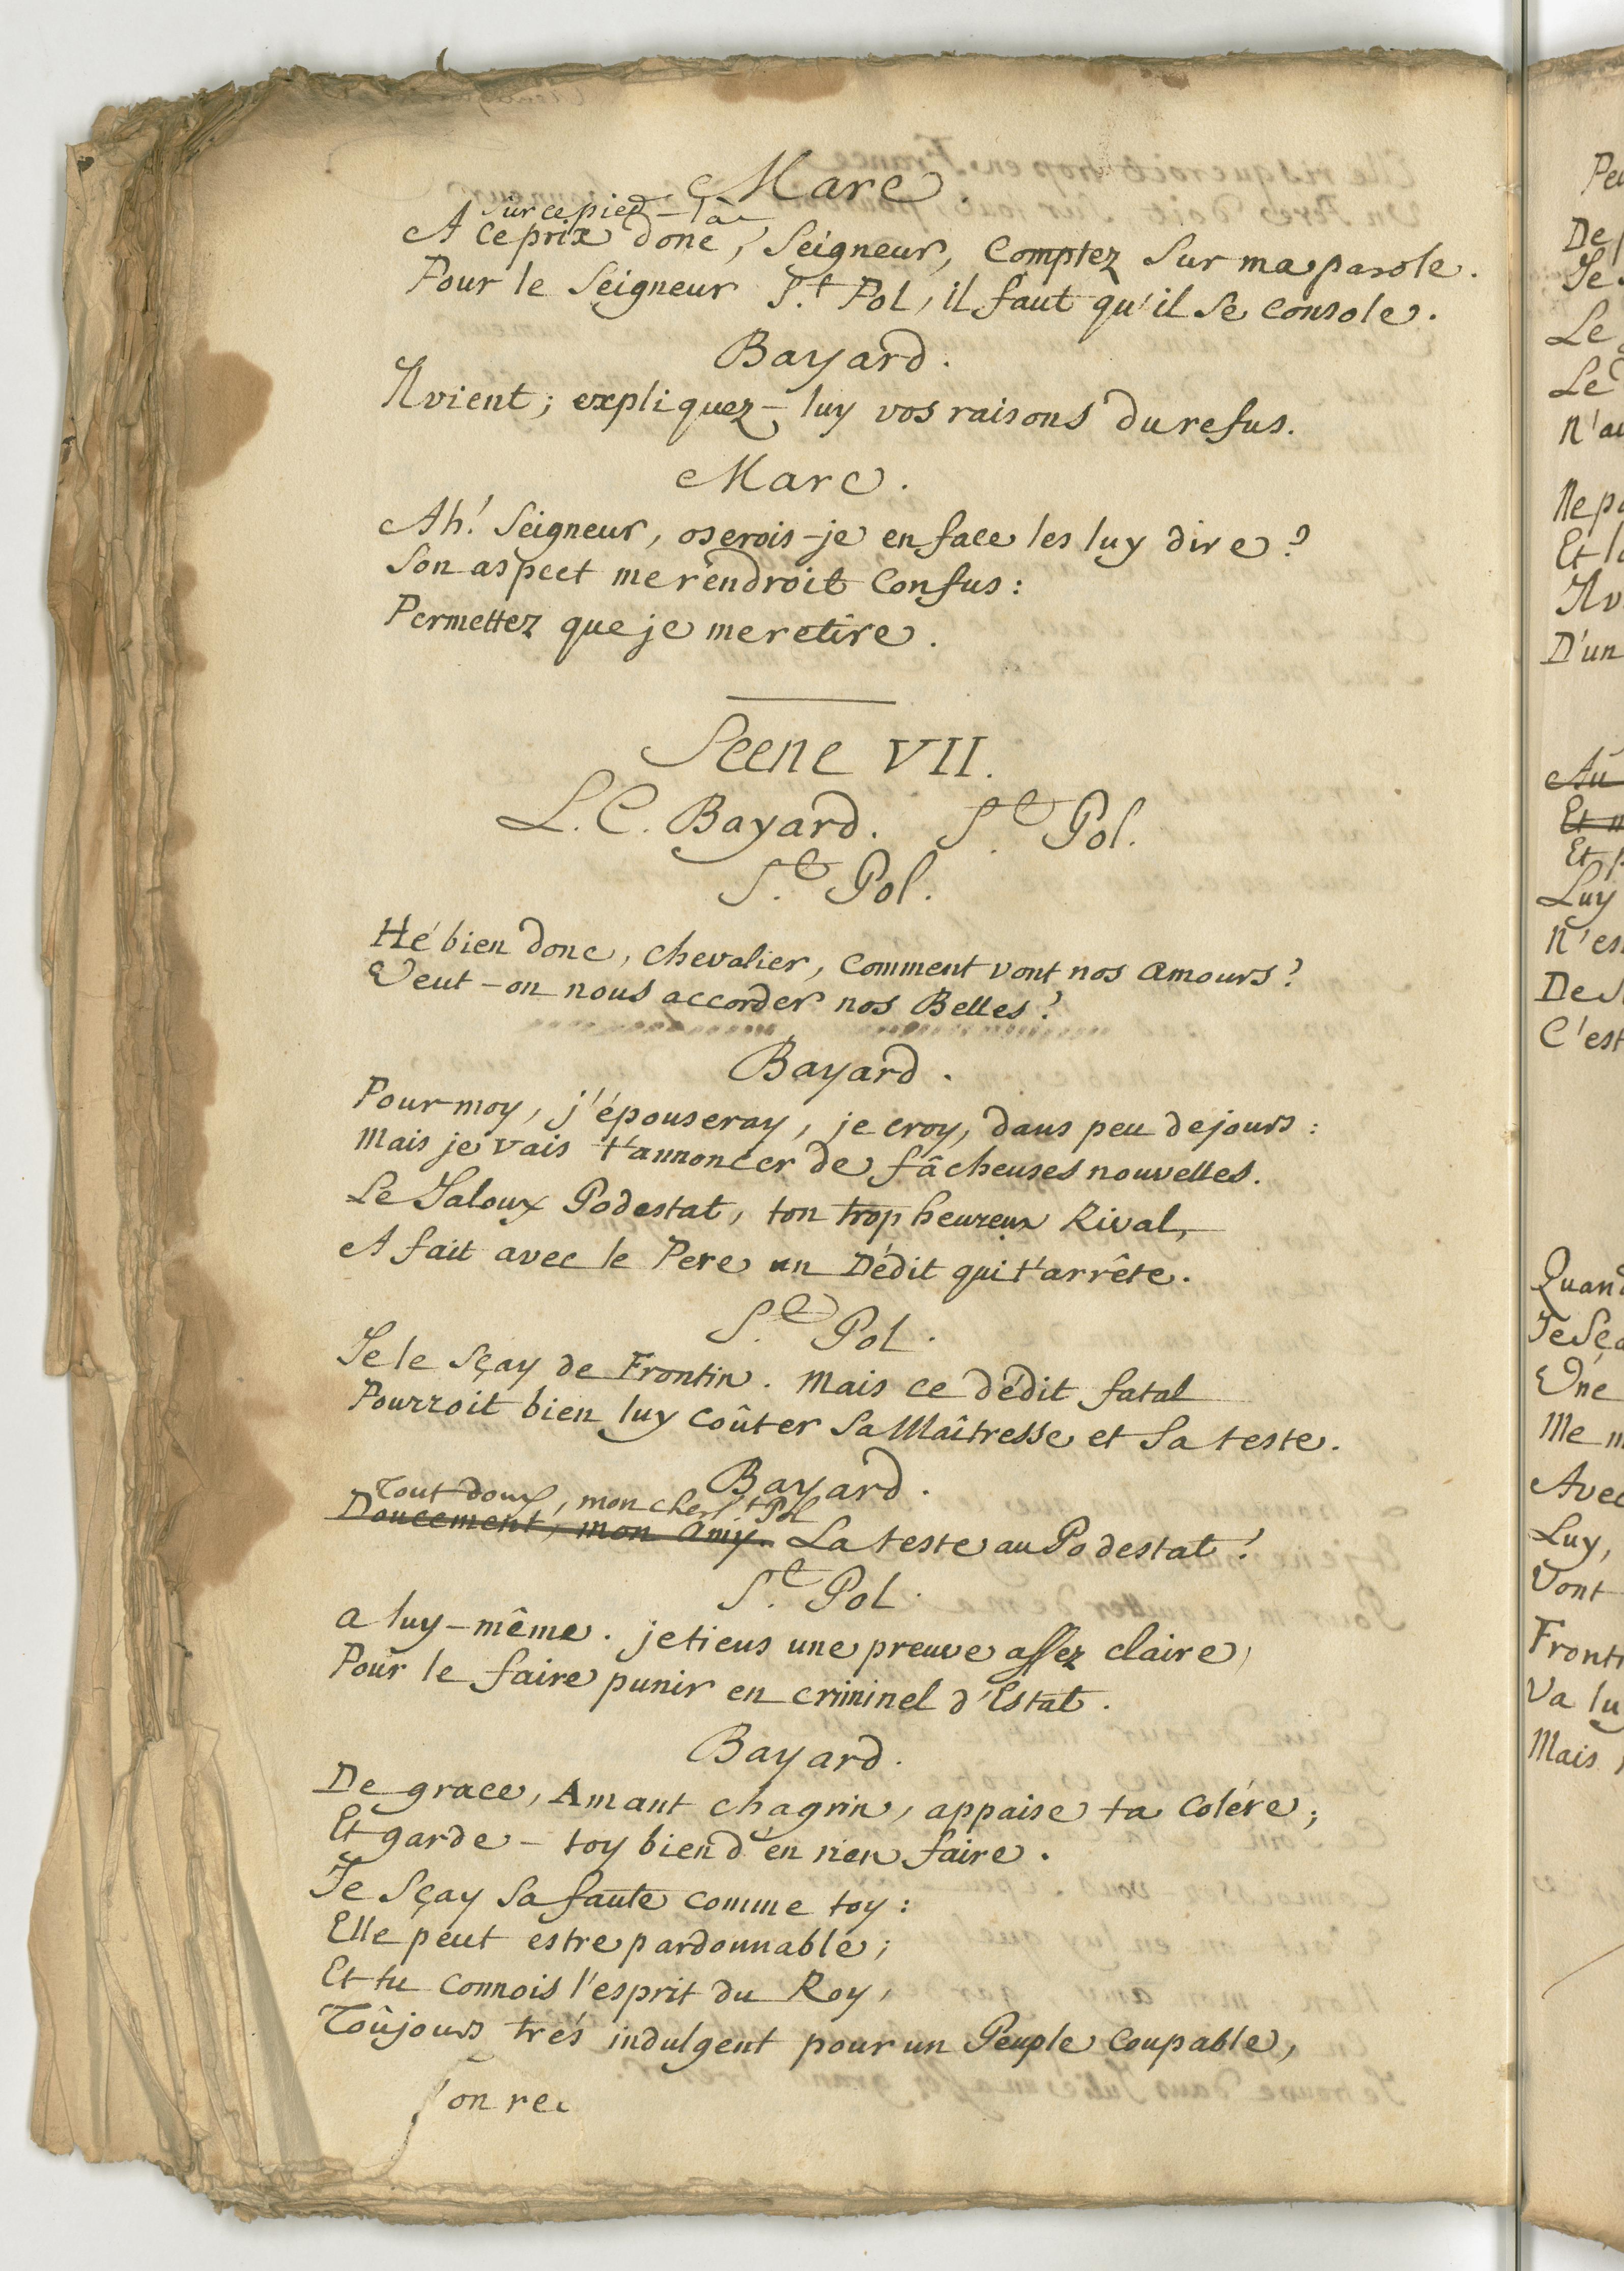 Marc
Sur ce pied-là
A ce prix donc, Seigneur, Comptez Sur ma parole.
Pour le Seigneur S.t Pol, il faut qu'il Se Console.
Bayard.
Il vient; expliquez-luy vos raisons du refus.
Marc.
Ah! Seigneur, oserois-je en face les luy dire?
Son aspect me rendroit Confus:
Permettez que je me retire.
Scene VII.
L. C. Bayard. S.t Pol.
S.t Pol.
Hé bien donc, Chevalier, Comment vont nos Amours?
Veut-on nous accorder nos Belles?
Bayard.
Pour moy, j'épouseray, je croy, dans peu de jours:
Mais je vais t'annoncer de fâcheuses nouvelles.
Le Jaloux Podestat, ton trop heureux Rival,
A fait avec le Pere un Dédit qui t'arrête.
S.t Pol.
Je le Sçay de Frontin. Mais ce dédit fatal
Pourroit bien luy Coûter Sa Maîtresse et Sa teste.
Bayard.
Tout doux, mon cher S.t Pol
Doucement, mon Amy. La teste au Podestat!
S.t Pol.
A luy-même. je tiens une preuve assez claire,
Pour le faire punir en criminel d'Estat.
Bayard.
De grace, Amant chagrin, appaise ta Colére;
Et garde-toy bien d'en rien faire.
Je Sçay Sa faute comme toy:
Elle peut estre pardonnable;
Et tu Connois l'esprit du Roy,
Toûjours trés indulgent pour un Peuple Coupable,
Pe
De
Je
Le
Le
N'au
Ne
Et
Il v
D'un
Au
Et
Et
Luy
N'es
De
C'est
Quand
Je
Une
Me
Avec
Luy,
Vont
Fronti
Va lu
Mais